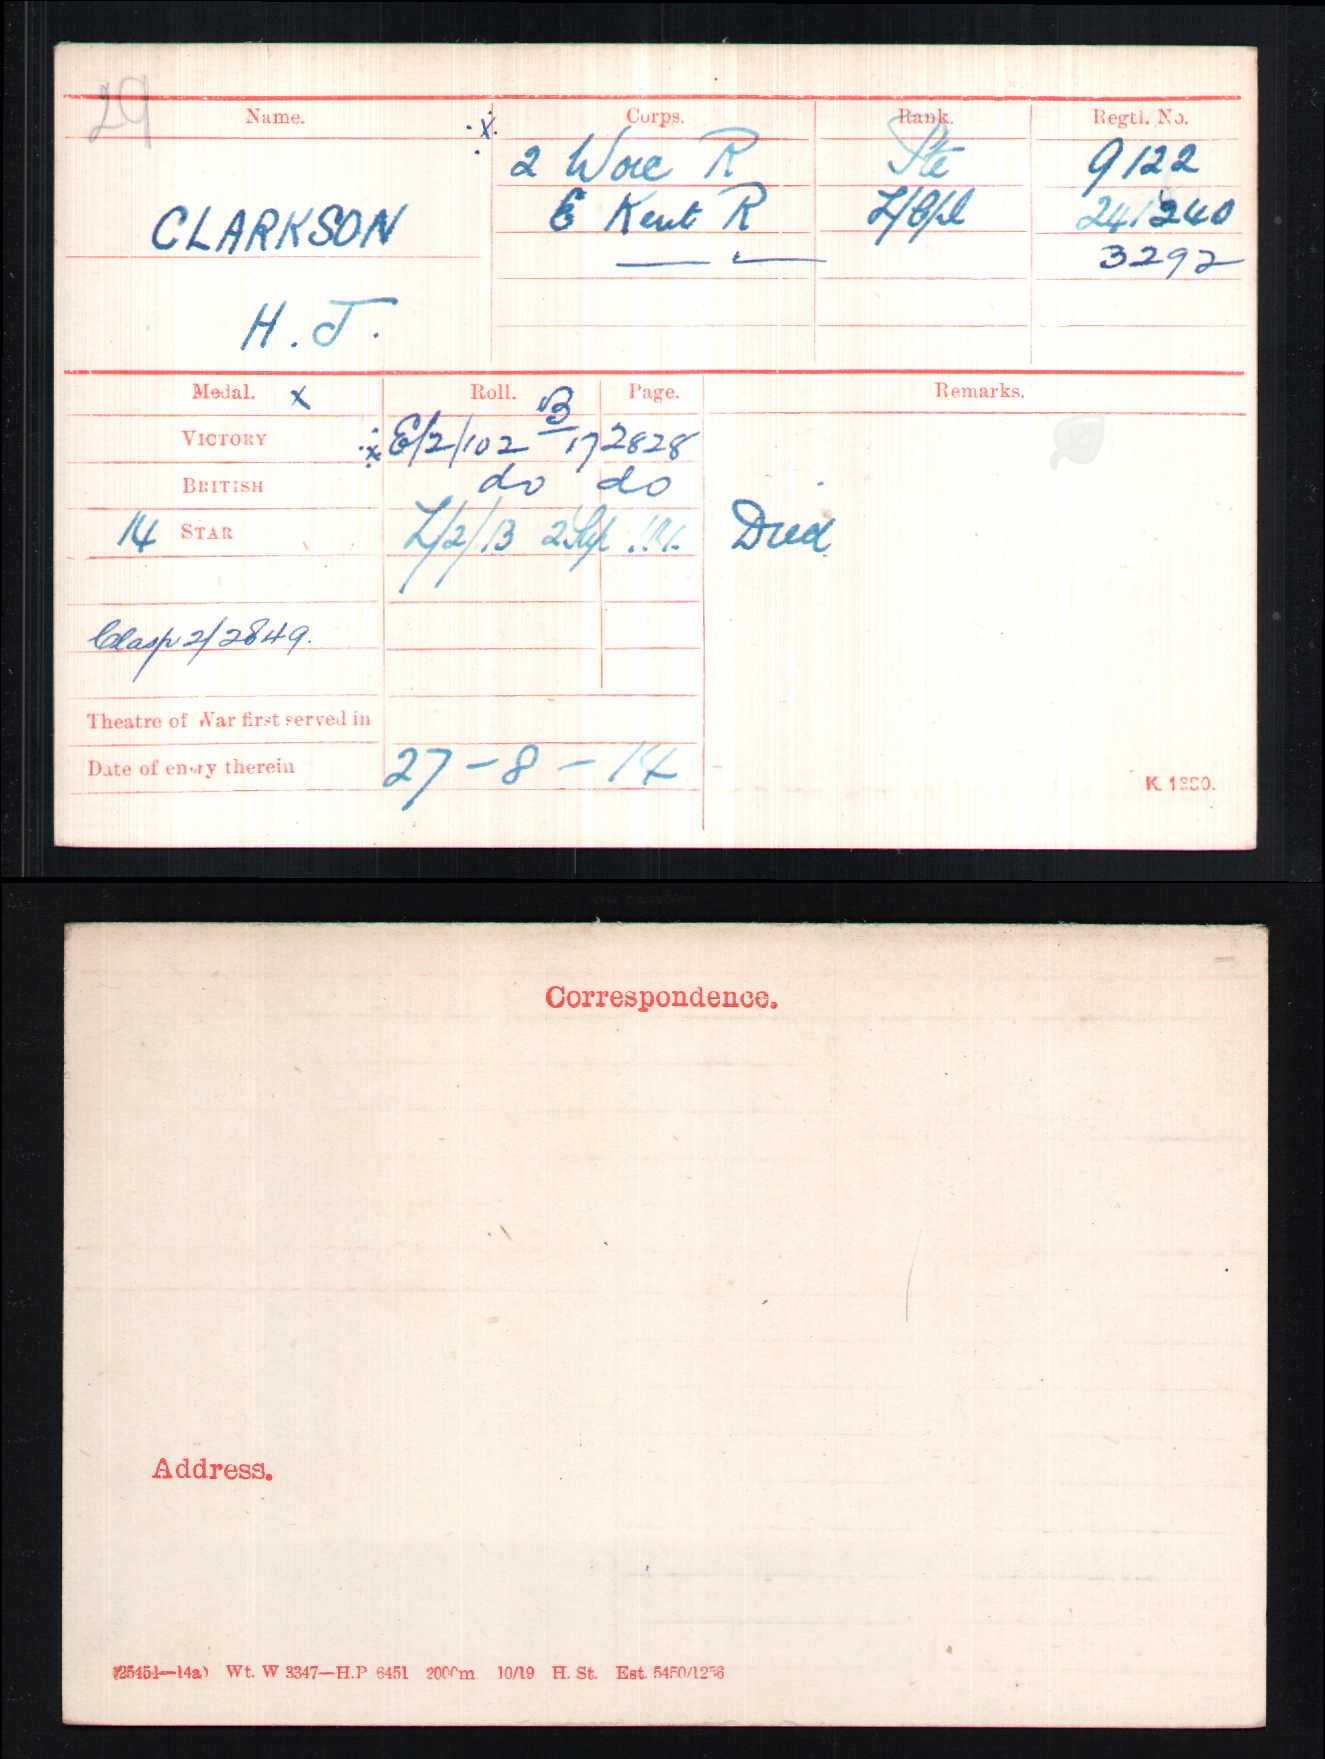 29
Name. Corps. Rank. Regtl. No.
.x. 2 Worc R Pte 9122
CLARKSON E Kent R L/Cpl 241240
3292
H. J.
Medal. x Roll. Page. Remarks.
VICTORY E/2/102 B 17 2828
BRITISH do do
14 STAR L/2/13 Died
Clasp 2/2849.
Theatre of War first served in
Date of entry therein 27-8-14
K. 1380.
Correspondence.
Address.
Wt. W 3347—H.P 6451 2000m 10/19 H. St. Est. 5450/1256